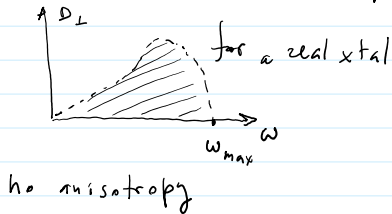 D⊥
for a real xtal
ω_max
ω
no anisotropy